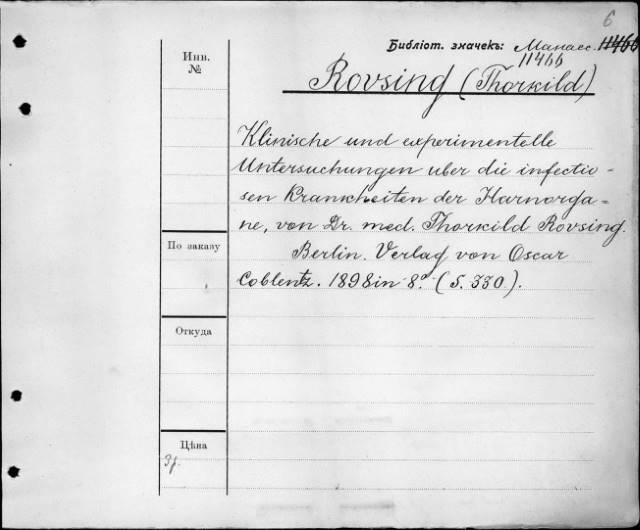 6
Инв.
№
Библіот. значекъ: Манасс. 11466
11466
Rovsing (Thorkild)
Klinische und experimentelle
Untersuchungen uber die infectio-
sen Krankheiten der Harnorga-
ne, von Dr. med. Thorkild Rovsing.
Berlin. Verlag von Oscar
Coblentz. 1898 in 8º (S. 330).
По заказу
Откуда
Цѣна